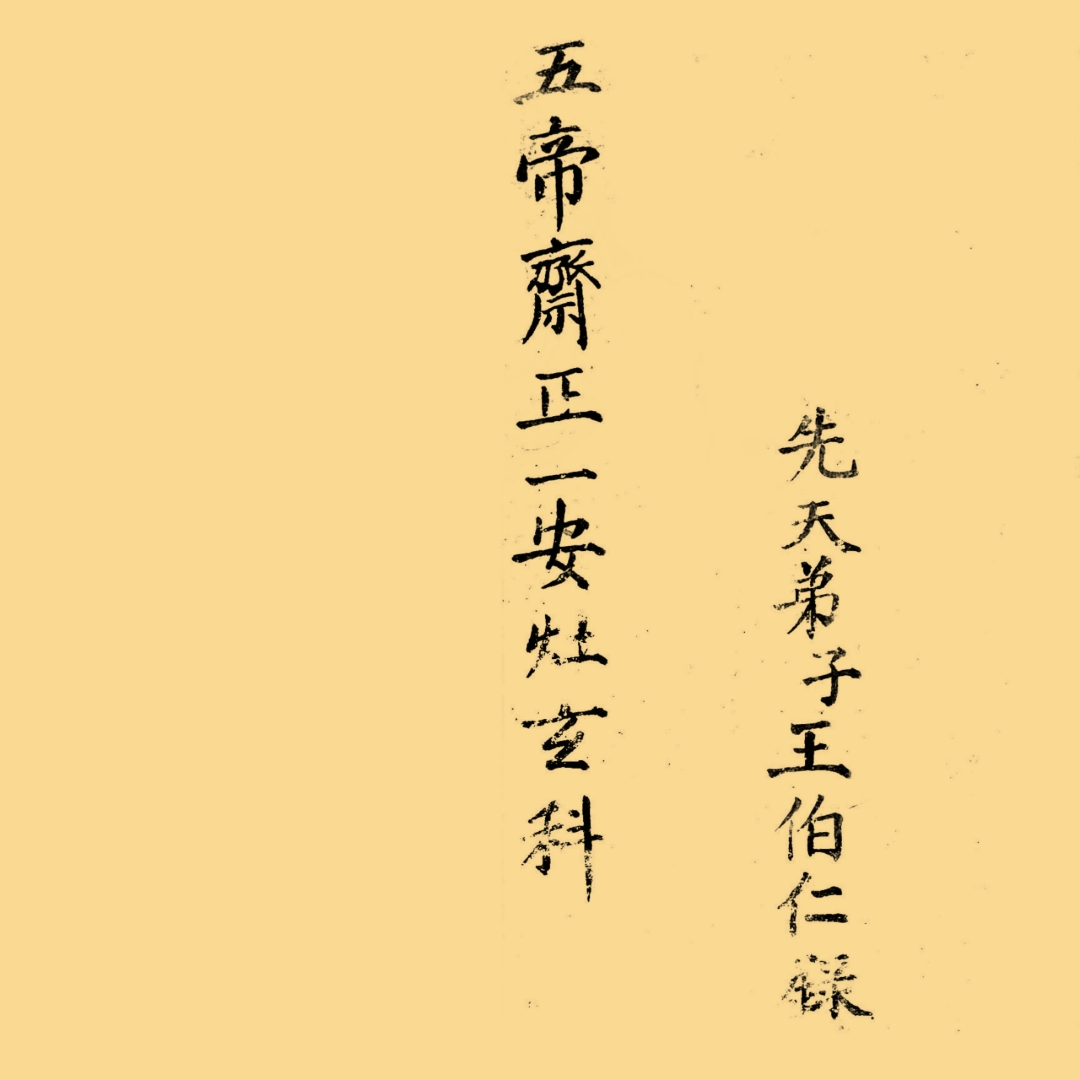 先天弟子王伯仁録
五帝齋正一安灶玄科